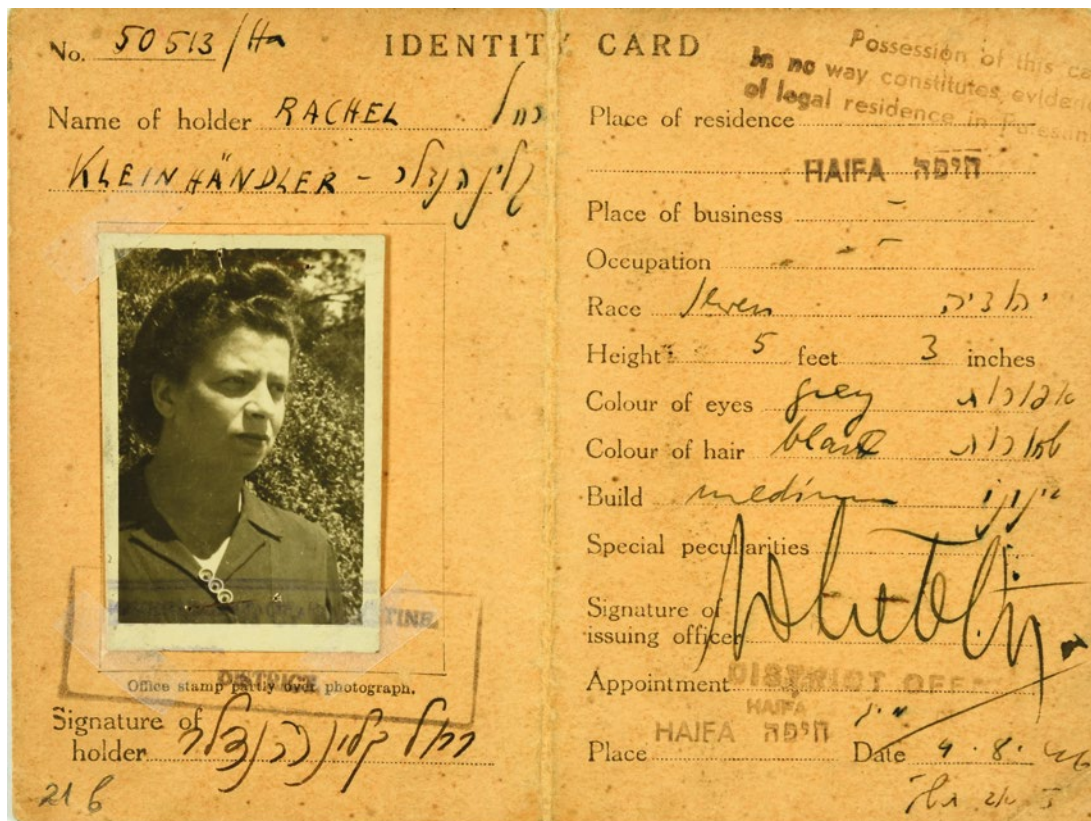 No. 50513/Ha
IDENTITY CARD
Name of holder RACHEL רחל
KLEINHÄNDLER - קליינהנדלר
Office stamp partly over photograph.
DISTRICT
Signature of
holder רחל קליינהנדלר
21 6
Possession of this ca
in no way constitutes eviden
of legal residence in Palestin
Place of residence
HAIFA חיפה
Place of business -
Occupation -
Race Jewess יהודיה
Height 5 feet 3 inches
Colour of eyes grey אפורות
Colour of hair black שחורות
Build medium בינוני
Special peculiarities
Signature of
issuing officer
Appointment DISTRICT OFF
HAIFA
HAIFA חיפה
Place Date 9.8.